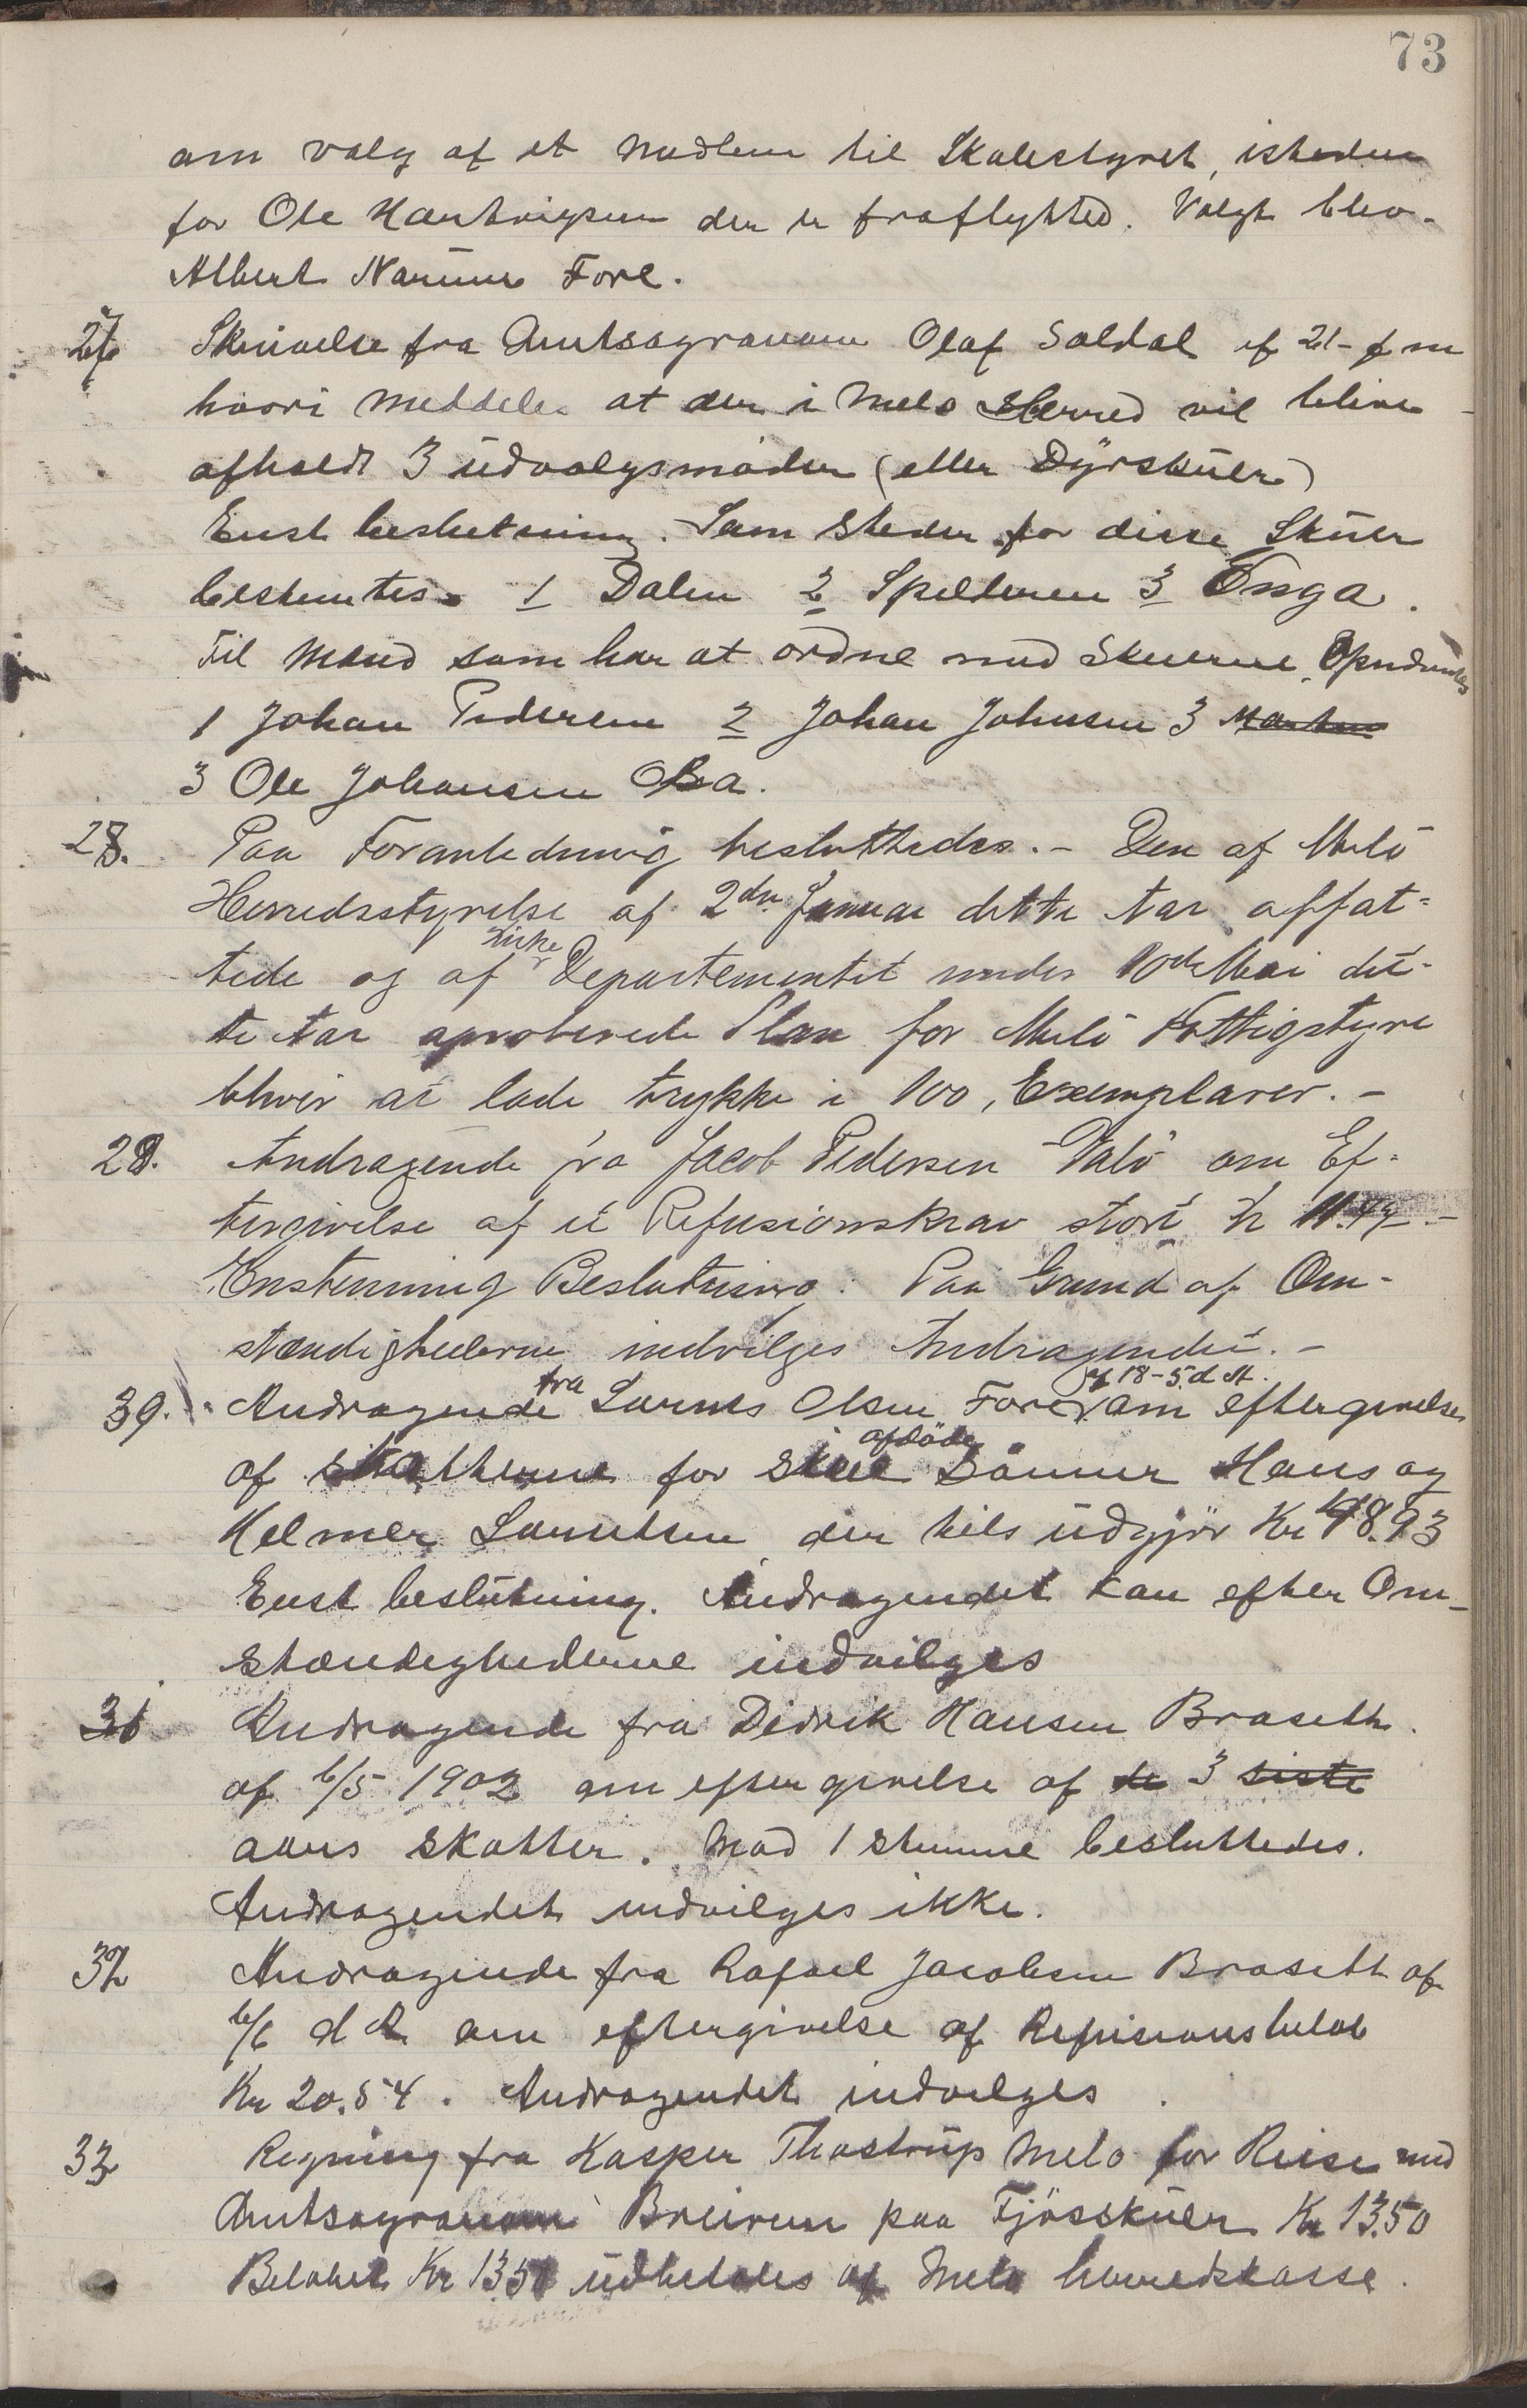 73
om valg af et medlem til Skolestyret, isteden
for Ole Hartvigsen der er fraflyttet. Valgt blev
Albert Narum Fore.
27 Skrivelse fra Amtsagronom Olaf Soldal af 21- f m
hvori meddeles at der i Melø Herred vil blive
afholdt 3 udvalgsmøder (eller Dyrskuer)
Enst beslutning. Som Steder for disse Skuer
bestemtes. 1 Dalen 2 Spilderen 3 Enga.
Til Mænd som har at ordne med Skuerne Opnævntes
1 Johan Pedersen 2 Johan Johnsen 3 Morten
3 Ole Johansen Aa.
28. Paa Foranledning besluttedes. - Den af Melö
Herredsstyrelse af 2den Januar dette Aar affat-
tede og af Kirke Departementet under 10de Mai det-
te Aar aproberede Plan for Melö Fattigstyre
bliver at lade trykke i 100, Exemplarer. -
29. Andragende fra Jacob Pedersen Valö om Ef-
tergivelse af et Refusionskrav stort Kr 11.47 -
Enstemmig Beslutning: Paa Grund af Om-
stændighederne indvilges Andragendet. -
30. Andragende fra Lornts Olsen Fore af 18-5. d A. om eftergivelse
af skatterne for sine afdöde Sönner Hans og
Helmer Lorntsen der tils udgjör Kr 48.93
Enst beslutning. Andragendet kan efter Om-
stændighederne indvilges
31 Andragende fra Didrik Hansen Braseth
af 6/5 1902 om eftergivelse af de 3 siste
aars skatter. Mod 1 stemme besluttedes.
Andragendet indvilges ikke.
32 Andragende fra Rafael Jacobsen Braseth af
6/6 d A om eftergivelse af Refusionsbeløb
Kr 20.54. Andragendet indvilges
33 Regning fra Kasper Thostrup Melø for Reise med
Amtsagronom Breirem paa Fjösskuer Kr 13.50
Beløbet Kr 13.50 udbetales af Melø herredskasse.